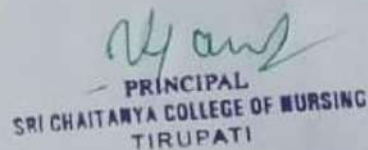 PRINCIPAL
SRI CHAITANYA COLLEGE OF NURSING
TIRUPATI